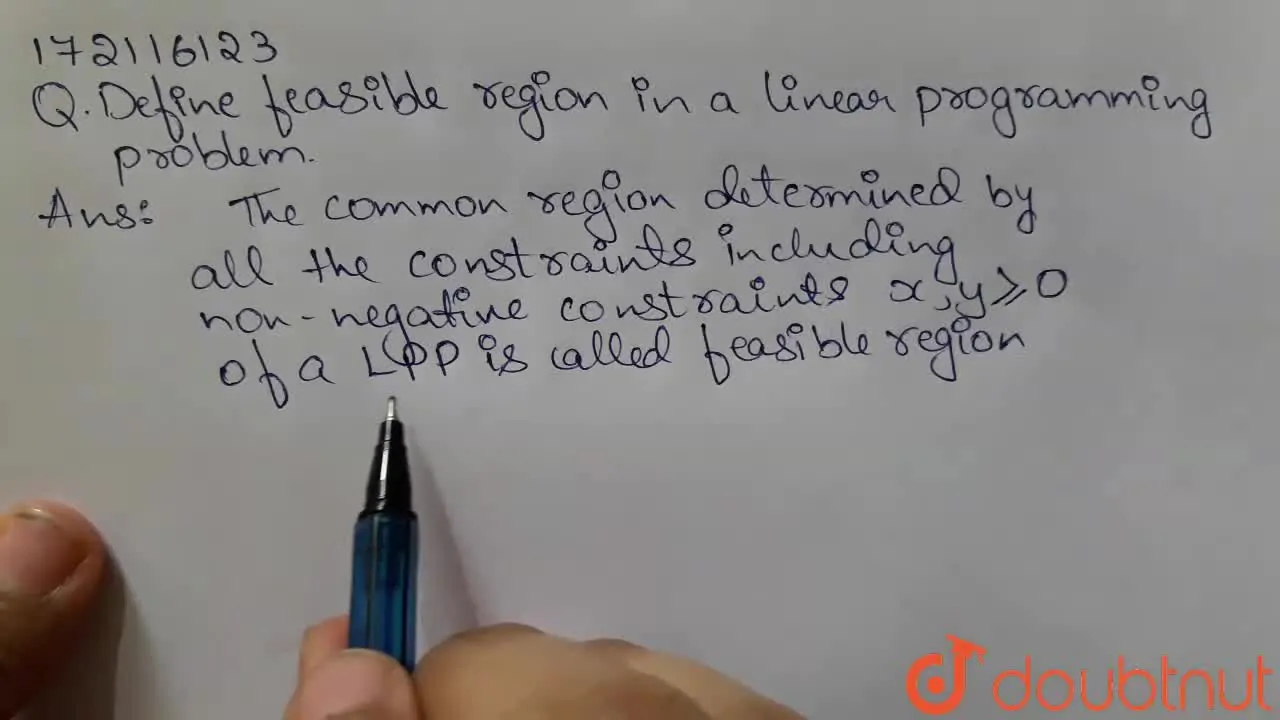 172116123
Q. Define feasible region in a linear programming
problem.
Ans: The common region determined by
all the constraints including
non-negative constraints x,y⩾0
of a LPP is called feasible region
doubtnut